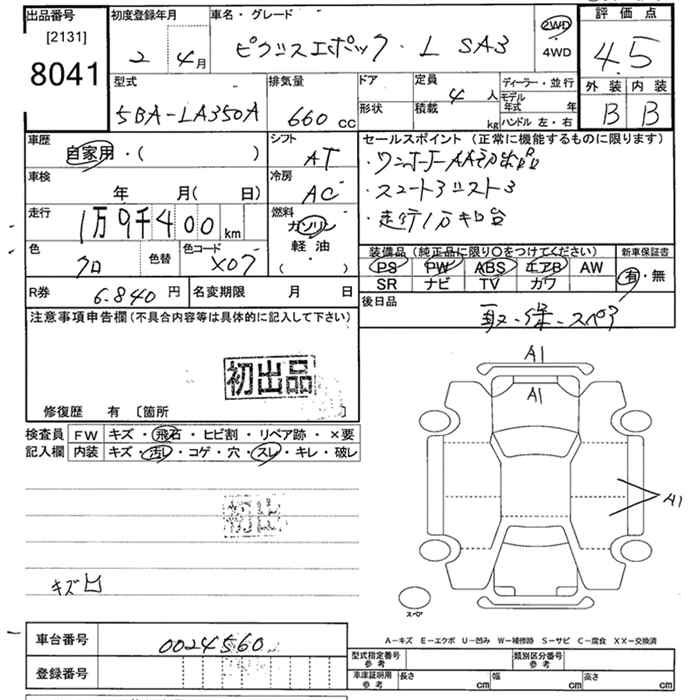 出品番号
[2131]
8041
初度登録年月
2 年 4月
車名・グレード
ピクシスエポック・L SA3
2WD
4WD
評価点
4.5
外装 内装
B B
型式
5BA-LA350A
排気量
660 cc
ドア
形状
定員
4 人
積載
kg
ディーラー・並行
モデル年式 年
ハンドル 左・右
車歴
自家用・( )
シフト
AT
車検
年 月( 日)
冷房
AC
走行
1万9千400 km
燃料
ガソリン
軽油
( )
色
クロ
色替
色コード
X07
セールスポイント(正常に機能するものに限ります)
・ワンオーナーAA初出品
・スマートアシスト3
・走行1万キロ台
装備品(純正品に限り○をつけてください)
PS PW ABS エアB AW
SR ナビ TV カワ
新車保証書
有・無
R券
6.840 円
名変期限 月 日
後日品
取・保・スペア
注意事項申告欄(不具合内容等は具体的に記入して下さい)
初出品
修復歴 有 〔箇所 〕
検査員記入欄
FW キズ・飛石・ヒビ割・リペア跡・×要
内装 キズ・汚レ・コゲ・穴・スレ・キレ・破レ
初出
キズ凹
A1
A1
A1
スペア
車台番号
0024560
登録番号
A-キズ E-エクボ U-凹み W-補修跡 S-サビ C-腐食 XX-交換済
型式指定番号
参考
類別区分番号
参考
車庫証明用
参考
長さ cm
幅 cm
高さ cm